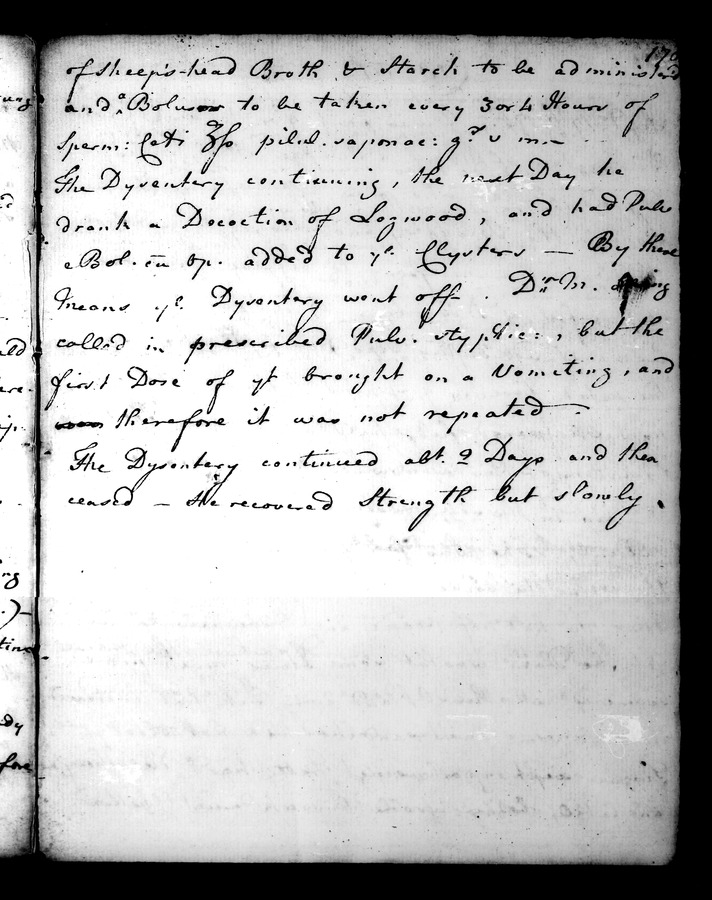 of Sheep's-head Broth & Starch to be administerd
and a Bolus to be taken every 3 or 4 Hours of
Sperm: Ceti ʒſs pilul. saponac: gr v m.
The Dysentery continuing, the next Day he
drank a Decoction of Logwood, and had Pulv
e Bol. c̄ū op. added to ye. Clysters — By these
Means ye. Dysentery went off. Dr. M.
called in prescribed Pulv. styptic:, but the
first Dose of yt brought on a Vomiting, and
therefore it was not repeated.
The Dysentery continued abt. 2 Days and then
ceased — He recovered Strength but slowly.